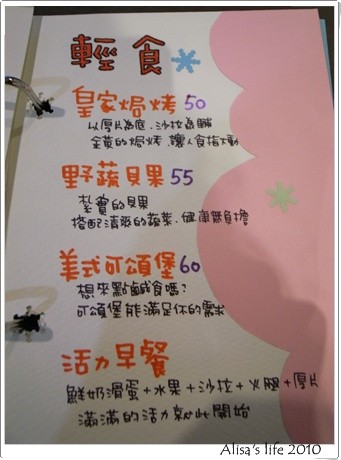 輕食
皇家焗烤 50
以厚片為底．沙拉為輔
金黃的焗烤．讓人食指大動
野蔬貝果 55
紮實的貝果
搭配清爽的蔬菜．健康無負擔
美式可頌堡 60
想來點鹹食嗎?
可頌堡能滿足你的需求
活力早餐
鮮奶滑蛋+水果+沙拉+火腿+厚片
滿滿的活力就此開始
Alisa's life 2010